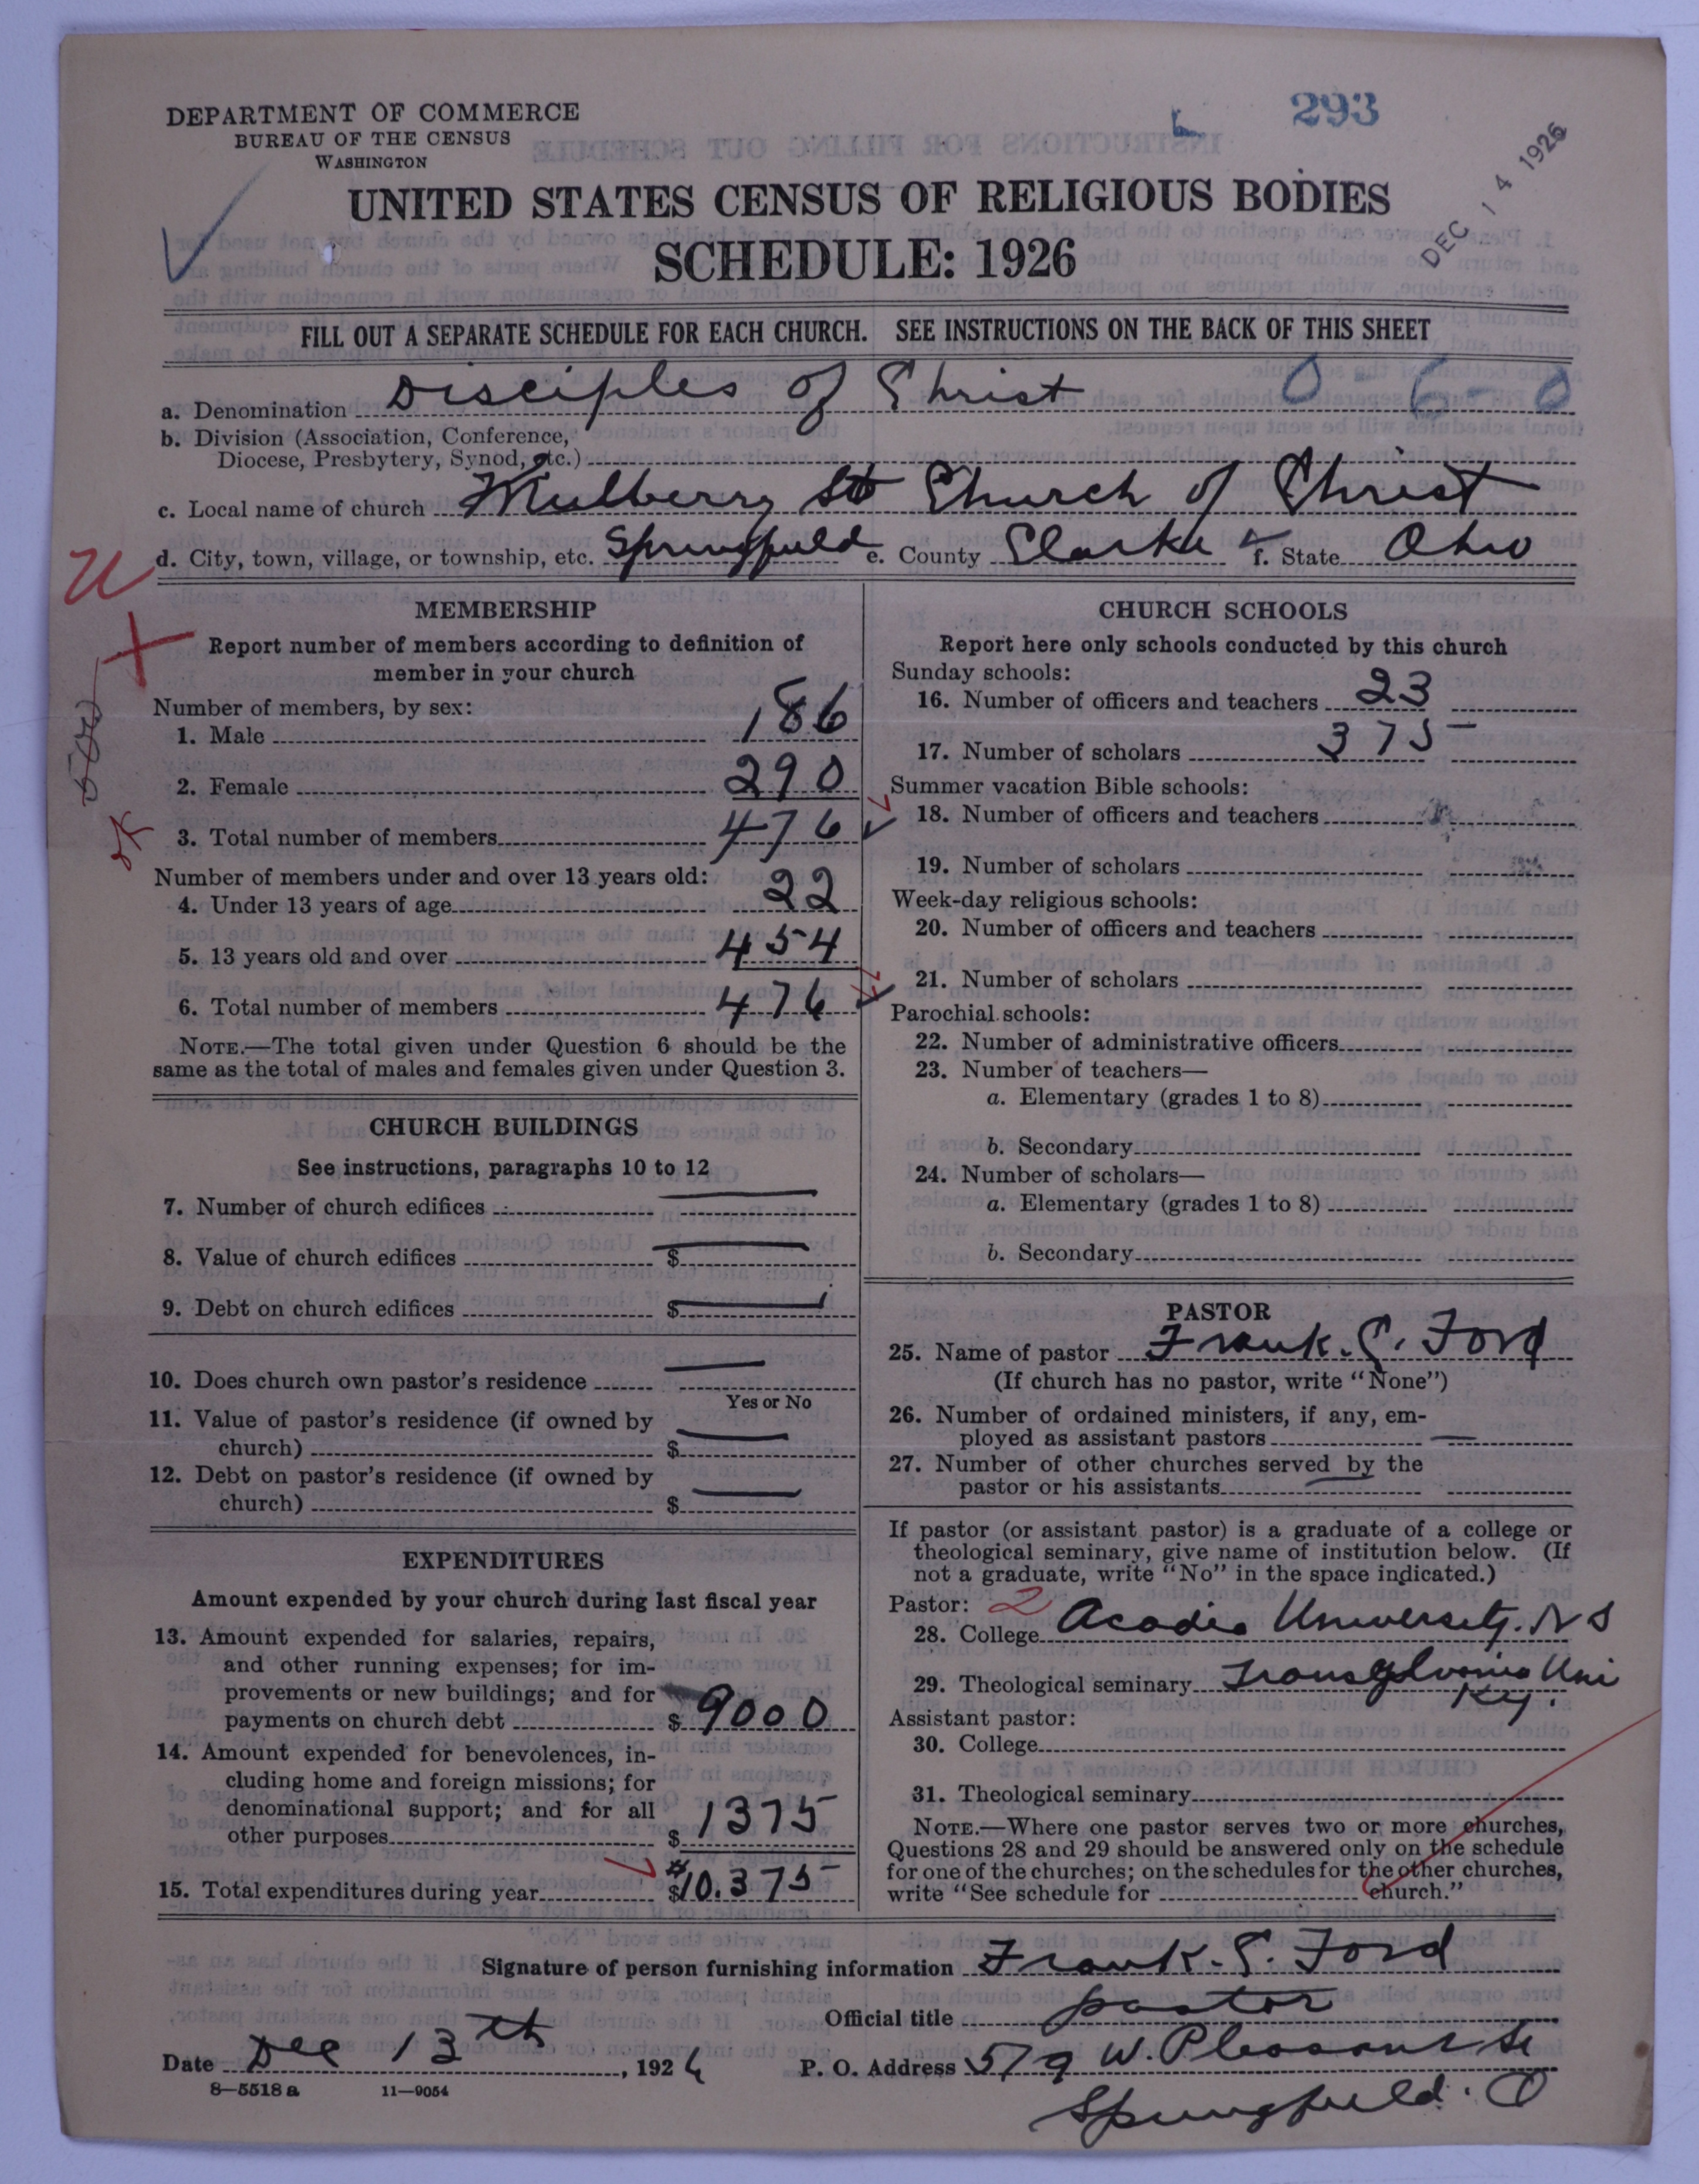 293
DEC 14 1926
DEPARTMENT OF COMMERCE
BUREAU OF THE CENSUS
WASHINGTON
UNITED STATES CENSUS OF RELIGIOUS BODIES
SCHEDULE: 1926
FILL OUT A SEPARATE SCHEDULE FOR EACH CHURCH. SEE INSTRUCTIONS ON THE BACK OF THIS SHEET
a. Denomination Disciples of Christ 0-6-0
b. Division (Association, Conference,
Diocese, Presbytery, Synod, etc.)
c. Local name of church Mulberry St Church of Christ
d. City, town, village, or township, etc. Springfield e. County Clarke f. State Ohio
MEMBERSHIP
Report number of members according to definition of
member in your church
Number of members, by sex:
1. Male 186
2. Female 290
3. Total number of members 476
Number of members under and over 13 years old:
4. Under 13 years of age 22
5. 13 years old and over 454
6. Total number of members 476
NOTE.—The total given under Question 6 should be the
same as the total of males and females given under Question 3.
CHURCH BUILDINGS
See instructions, paragraphs 10 to 12
7. Number of church edifices —
8. Value of church edifices $ —
9. Debt on church edifices $ —
10. Does church own pastor's residence —
Yes or No
11. Value of pastor's residence (if owned by
church) $ —
12. Debt on pastor's residence (if owned by
church) $ —
EXPENDITURES
Amount expended by your church during last fiscal year
13. Amount expended for salaries, repairs,
and other running expenses; for im-
provements or new buildings; and for
payments on church debt $ 9000
14. Amount expended for benevolences, in-
cluding home and foreign missions; for
denominational support; and for all
other purposes $ 1375
15. Total expenditures during year $ 10.375
CHURCH SCHOOLS
Report here only schools conducted by this church
Sunday schools:
16. Number of officers and teachers 23
17. Number of scholars 375
Summer vacation Bible schools:
18. Number of officers and teachers
19. Number of scholars
Week-day religious schools:
20. Number of officers and teachers
21. Number of scholars
Parochial schools:
22. Number of administrative officers
23. Number of teachers—
a. Elementary (grades 1 to 8)
b. Secondary
24. Number of scholars—
a. Elementary (grades 1 to 8)
b. Secondary
PASTOR
25. Name of pastor Frank. S. Ford
(If church has no pastor, write "None")
26. Number of ordained ministers, if any, em-
ployed as assistant pastors —
27. Number of other churches served by the
pastor or his assistants —
If pastor (or assistant pastor) is a graduate of a college or
theological seminary, give name of institution below. (If
not a graduate, write "No" in the space indicated.)
Pastor: 2
28. College Acadia University. N S
29. Theological seminary Transylvania Uni
Ky.
Assistant pastor:
30. College
31. Theological seminary
NOTE.—Where one pastor serves two or more churches,
Questions 28 and 29 should be answered only on the schedule
for one of the churches; on the schedules for the other churches,
write "See schedule for church."
Signature of person furnishing information Frank. S. Ford
Official title pastor
Date Dec 13th, 1926 P. O. Address 579 W. Pleasant St
Springfield. O
8—5518a 11—9054